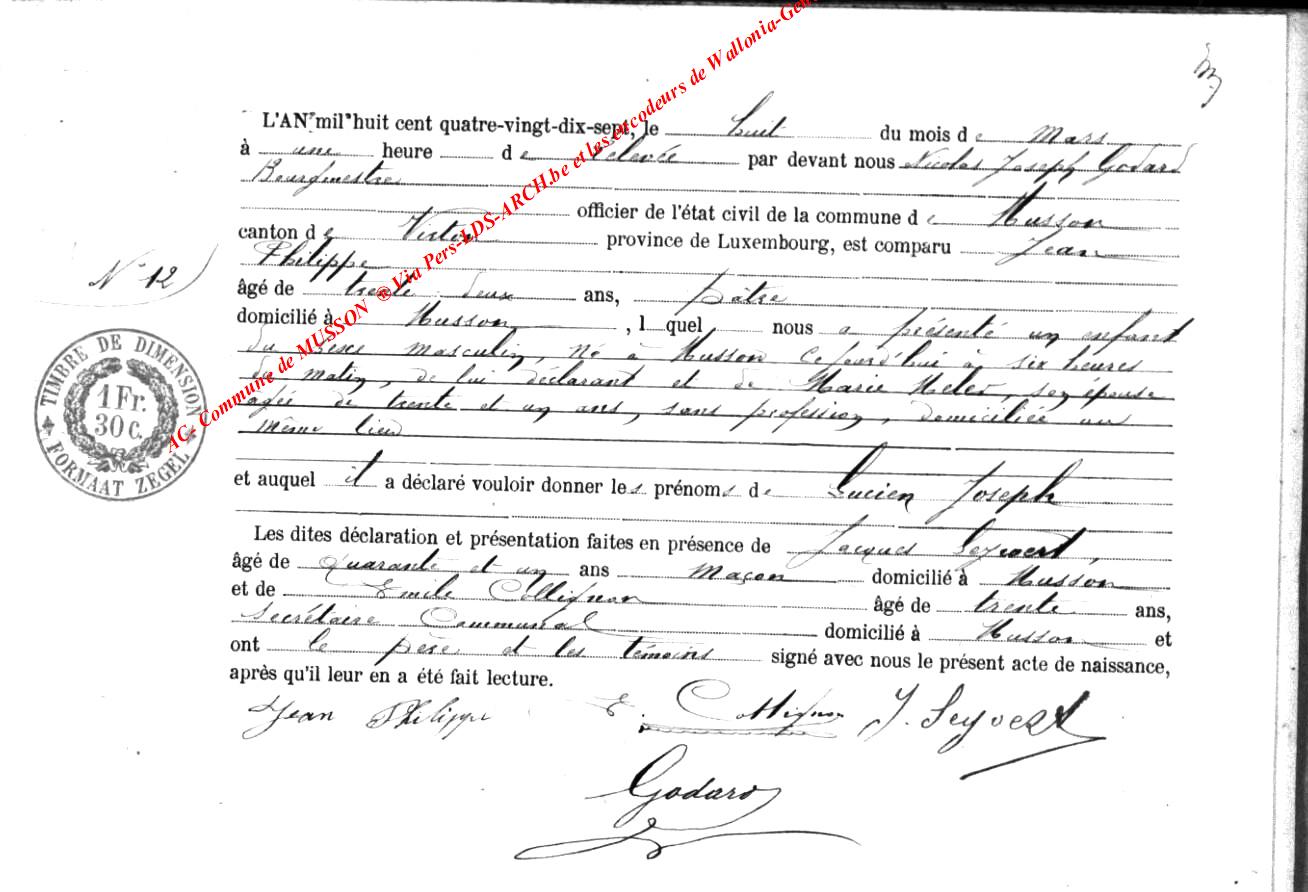 L'AN mil huit cent quatre-vingt-dix-sept, le huit du mois de Mars
à une heure de relevée par devant nous Nicolas Joseph Godard
Bourgmestre
officier de l'état civil de la commune de Musson
canton de Virton province de Luxembourg, est comparu Jean
Philippe
N° 12
âgé de trente deux ans, pâtre
domicilié à Musson, lequel nous a présenté un enfant
du sexe masculin, né à Musson cejourd'hui à six heures
du matin, de lui déclarant et de Marie son épouse
agée de trente et un ans, sans profession, domiciliée au
même lieu
et auquel il a déclaré vouloir donner les prénoms de Lucien Joseph
Les dites déclaration et présentation faites en présence de Jacques Seywert,
âgé de Quarante et un ans maçon domicilié à Musson
et de Emile Collignon âgé de trente ans,
Secrétaire Communal domicilié à Musson et
ont le père et les témoins signé avec nous le présent acte de naissance,
après qu'il leur en a été fait lecture.
Jean Philippe E. Collignon J. Seyvert
Godard
TIMBRE DE DIMENSION
1 Fr.
30 c.
FORMAAT ZEGEL
AC. Commune de MUSSON ® Via Pers-LDS-ARCH.be et les encodeurs de Wallonia-Gen